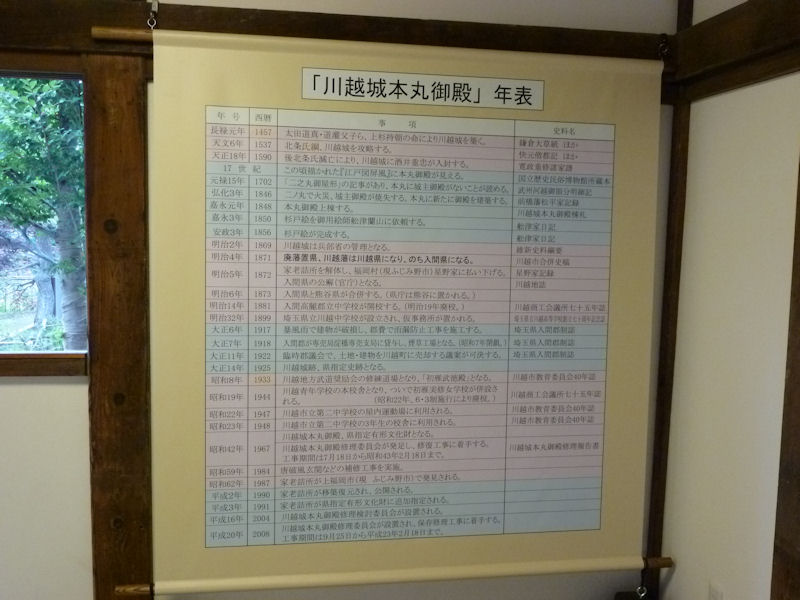 「川越城本丸御殿」年表
年号 西暦 事項 史料名
長禄元年 1457 太田道真・道灌父子ら、上杉持朝の命により川越城を築く。 鎌倉大草紙 ほか
天文6年 1537 北条氏綱、川越城を攻略する。 快元僧都記 ほか
天正18年 1590 後北条氏滅亡により、川越城に酒井重忠が入封する。 寛政重修諸家譜
17世紀 この頃描かれた『江戸図屏風』に本丸御殿が見える。 国立歴史民俗博物館所蔵本
元禄15年 1702 「二之丸御屋形」の記事があり、本丸に城主御殿がないことが読める。 武州川越御領分明細記
弘化3年 1846 二ノ丸で火災、城主御殿が焼失する。本丸に新たに御殿を建築する。 前橋藩松平家記録
嘉永元年 1848 本丸御殿上棟する。 川越城本丸御殿棟札
嘉永3年 1850 杉戸絵を御用絵師舩津蘭山に依頼する。 舩津家日記
安政3年 1856 杉戸絵が完成する。 舩津家日記
明治2年 1869 川越城は兵部省の管理となる。 維新史料綱要
明治4年 1871 廃藩置県、川越藩は川越県になり、のち入間県になる。 川越市合併史稿
明治5年 1872 家老詰所を解体し、福岡村(現ふじみ野市)星野家に払い下げる。 星野家記録
入間県の公廨(官庁)となる。 川越地誌
明治6年 1873 入間県と熊谷県が合併する。(県庁は熊谷に置かれる。)
明治14年 1881 入間高麗郡立中学校が開校する。(明治19年廃校。) 川越商工会議所七十五年誌
明治32年 1899 埼玉県立川越中学校が設立され、仮事務所が置かれる。
大正6年 1917 暴風雨で建物が破損し、郡費で雨漏防止工事を施工する。 埼玉県入間郡制誌
大正7年 1918 入間郡が専売局淀橋専売支局に貸与し、煙草工場となる。(昭和7年閉鎖。) 埼玉県入間郡制誌
大正11年 1922 臨時郡議会で、土地・建物を川越町に売却する議案が可決する。 埼玉県入間郡制誌
大正14年 1925 川越城跡、県指定史跡となる。
昭和8年 1933 川越地方武道奨励会の修練道場となり、「初雁武徳殿」となる。 川越市教育委員会40年誌
昭和19年 1944 川越青年学校の本校舎となり、ついで初雁実修女学校が併設さ
れる。 (昭和22年、6・3制施行により廃校。) 川越商工会議所七十五年誌
昭和22年 1947 川越市立第二中学校の屋内運動場に利用される。 川越市教育委員会40年誌
昭和23年 1948 川越市立第二中学校の3年生の校舎に利用される。 川越市教育委員会40年誌
昭和42年 1967 川越城本丸御殿、県指定有形文化財となる。
川越城本丸御殿修理委員会が発足し、修復工事に着手する。 川越城本丸御殿修理報告書
工事期間は7月18日から昭和43年2月18日まで。
昭和59年 1984 唐破風玄関などの補修工事を実施。
昭和62年 1987 家老詰所が上福岡市(現 ふじみ野市)で発見される。
平成2年 1990 家老詰所が移築復元され、公開される。
平成3年 1991 家老詰所が県指定有形文化財に追加指定される。
平成16年 2004 川越城本丸御殿修理検討委員会が設置される。
平成20年 2008 川越城本丸御殿修理委員会が設置され、保存修理工事に着手する。
工事期間は9月25日から平成23年2月18日まで。